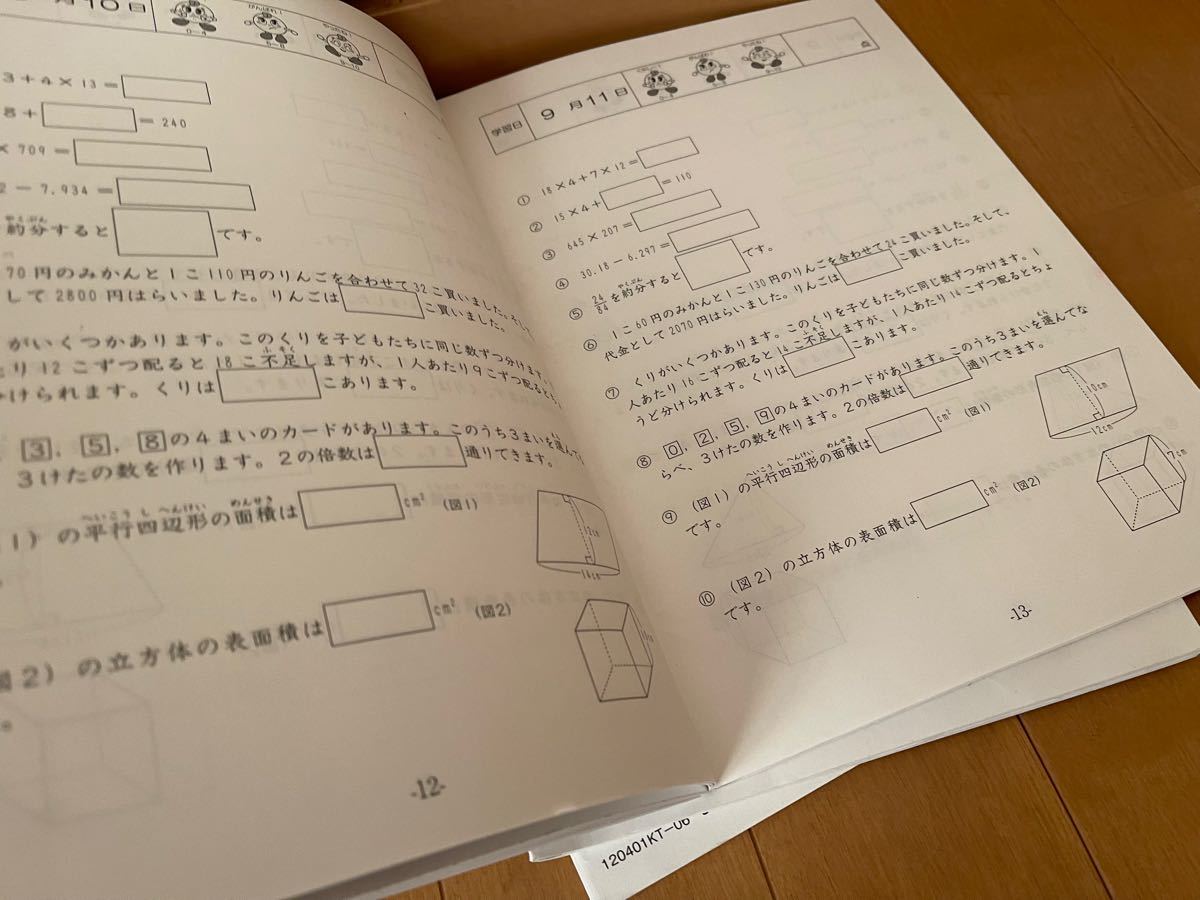 月10日
0〜4
がんばれ!
5〜8
9〜10
3+4×13=
8+ =240
×709=
2−7.934=
やくぶん
約分すると です。
70円のみかんと1こ110円のりんごを合わせて32こ買いました。そして
して2800円はらいました。りんごは こ買いました。
がいくつかあります。このくりを子どもたちに同じ数ずつ分けます。
たり12こずつ配ると18こ不足しますが、1人あたり9こずつ配ると
ふそく
分けられます。くりは こあります。
3、5、8の4まいのカードがあります。このうち3まいを選んで
3けたの数を作ります。2の倍数は 通りできます。
へいこうしへんけい めんせき
1)の平行四辺形の面積は cm² (図1)
12cm
14cm
図2)の立方体の表面積は cm² (図2)
-12-
学習日 9月11日
点
① 18×4+7×12=
② 15×4+ =110
③ 645×207=
④ 30.18−6.297=
やくぶん
⑤ 24/84を約分すると です。
⑥ 1こ60円のみかんと1こ130円のりんごを合わせて24こ買いました。そして、
代金として2070円はらいました。りんごは こ買いました。
⑦ くりがいくつかあります。このくりを子どもたちに同じ数ずつ分けます。1
ふそく
人あたり16こずつ配ると14こ不足しますが、1人あたり14こずつ配るとちょ
うど分けられます。くりは こあります。
えら
⑧ 0、2、5、9の4まいのカードがあります。このうち3まいを選んでな
らべ、3けたの数を作ります。2の倍数は 通りできます。
へいこうしへんけい めんせき
⑨ (図1)の平行四辺形の面積は cm² (図1)
です。
10cm
12cm
⑩ (図2)の立方体の表面積は cm² (図2)
です。
7cm
-13-
120401KT-06